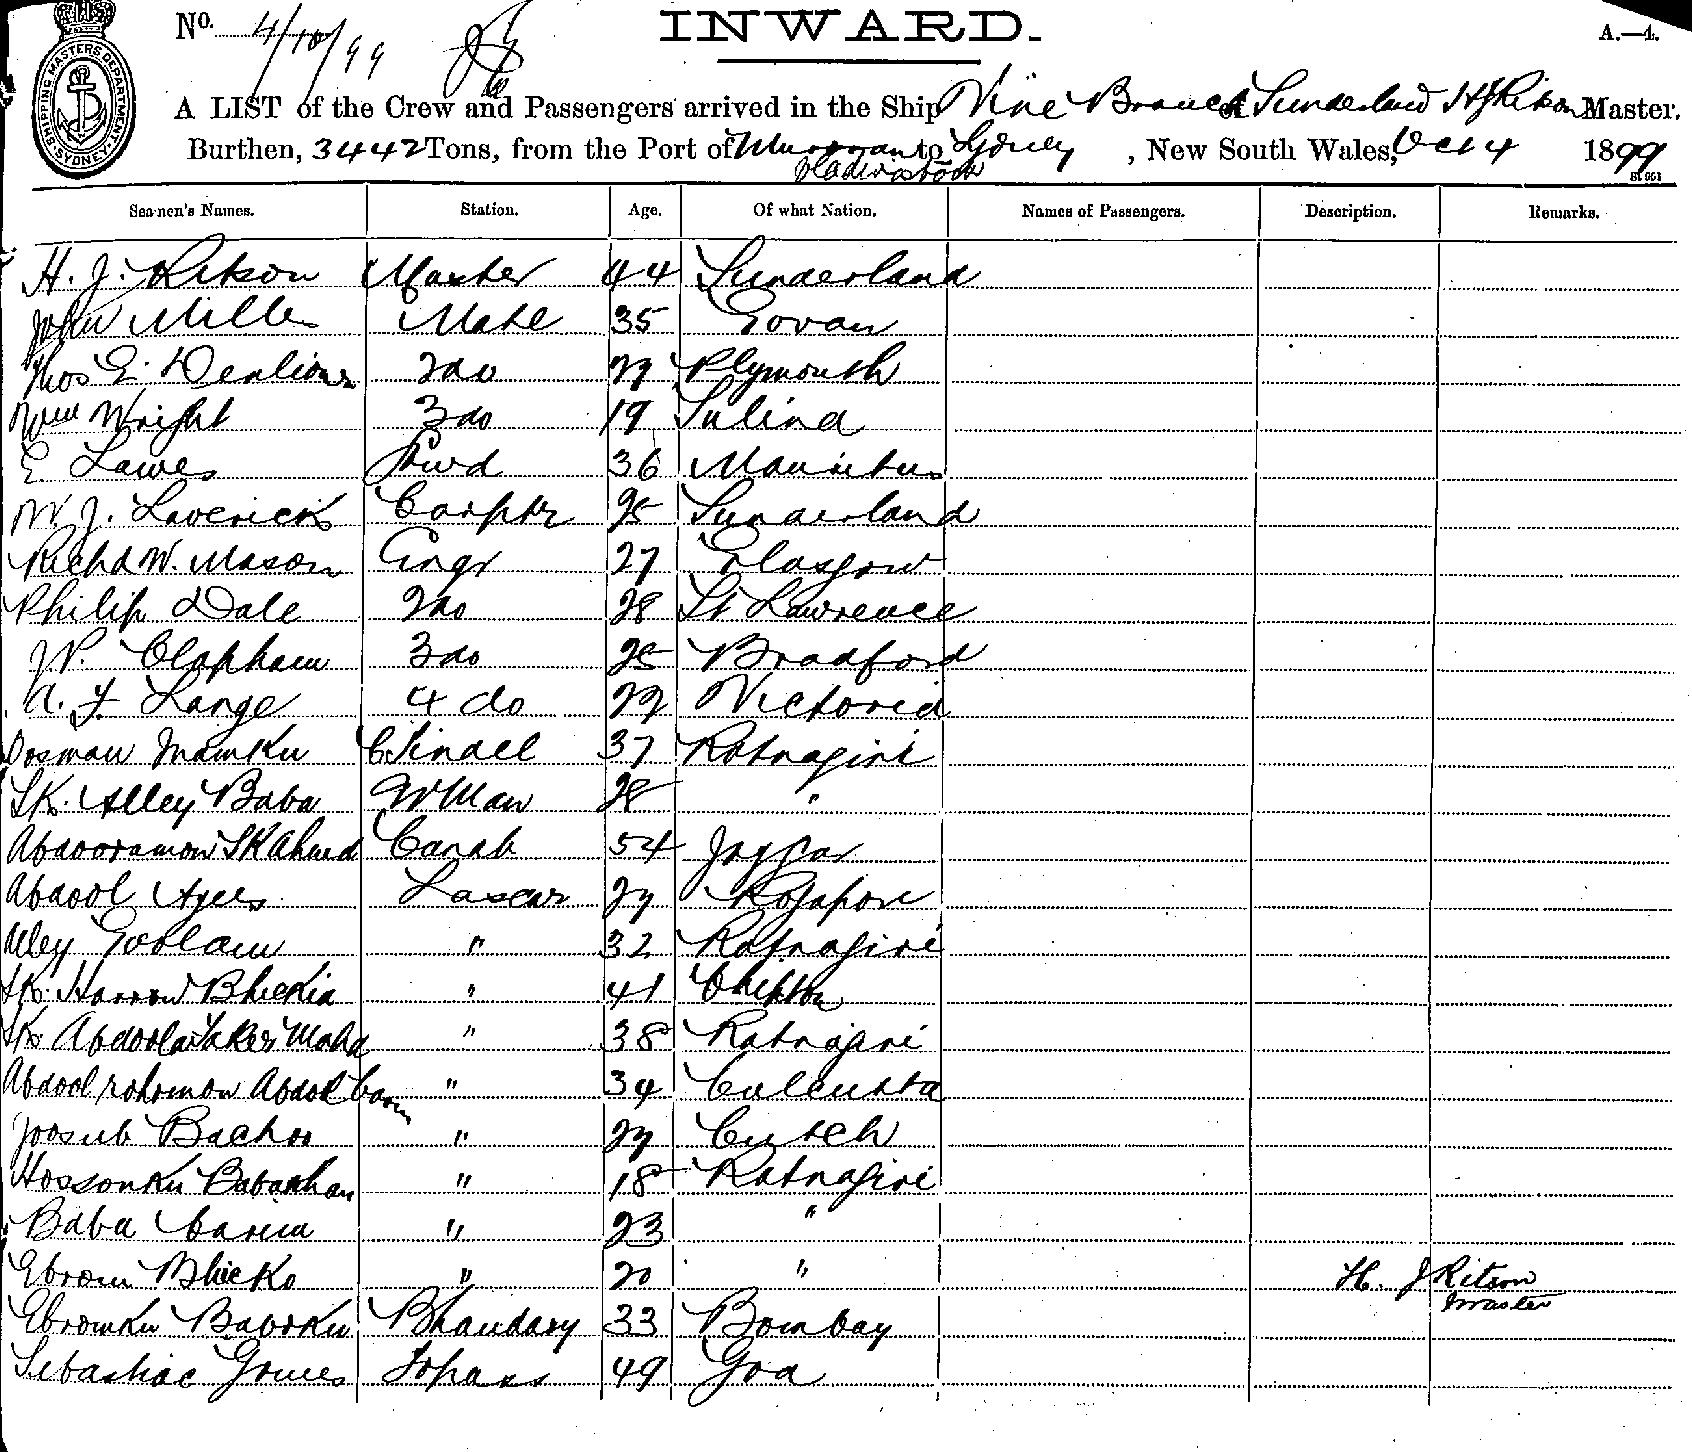 No. 4/10/99
INWARD.
A.—4.
SHIPPING MASTERS DEPARTMENT SYDNEY
A LIST of the Crew and Passengers arrived in the Ship Vine Branch Sunderland H J Ritson Master.
Burthen, 3442 Tons, from the Port of to Sydney, New South Wales, Oct 4 1899
Vladivostock
Seamen's Names. Station. Age. Of what Nation. Names of Passengers. Description. Remarks.
H. J. Ritson Master 44 Sunderland
John Miller Mate 35 Govan
Thos E. 2 do 29 Plymouth
Wm Wright 3 do 19 Sulina
E Lawes Stwd 36 Mauritus
W J. Laverick Carptr 25 Sunderland
Richd W. Mason Engr 27 Glasgow
Philip Dale 2 do 28 St Lawrence
J P. Clapham 3 do 25 Bradford
A. F. Lange 4 do 22 Victoria
Oosman Mamku Tindell 37 Ratnagiri
SK. Alley Baba 28 "
Abdooramon SK Ahmd Cassab 54
Abdool Lascar 27 Rajapore
Alley Goolam " 32 Ratnagiri
SK. Harrow Bhickia " 41
SK. Abdoola Saker Mahd " 38 Ratnagiri
Abdool rohomon Abdol Carim " 34 Culcutta
Joosub Bachoo " 27 Cutch
Hossonku Babakhan " 18 Ratnagiri
Baba Carim " 23 "
Ebrom Bhicko " 20 " H. J Ritson
Master
Ebromku Baboku Bhandary 33 Bombay
Sebastiao Gomes Topass 49 Goa